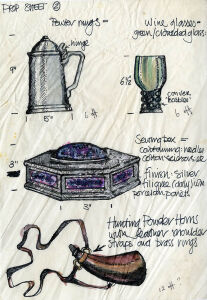 PROP SHEET ②
Pewter mugs =
hinge
9"
5"
6 off
Wine glasses =
green/clouded glass
6½
convex
"bobbles"
6 off
Sewing box =
containing needles
cotton scissors etc
finish: silver
filigree (dark) with
porcelain panels
3"
3"
Hunting Powder Horns
with leather shoulder
straps and brass rings
12 off